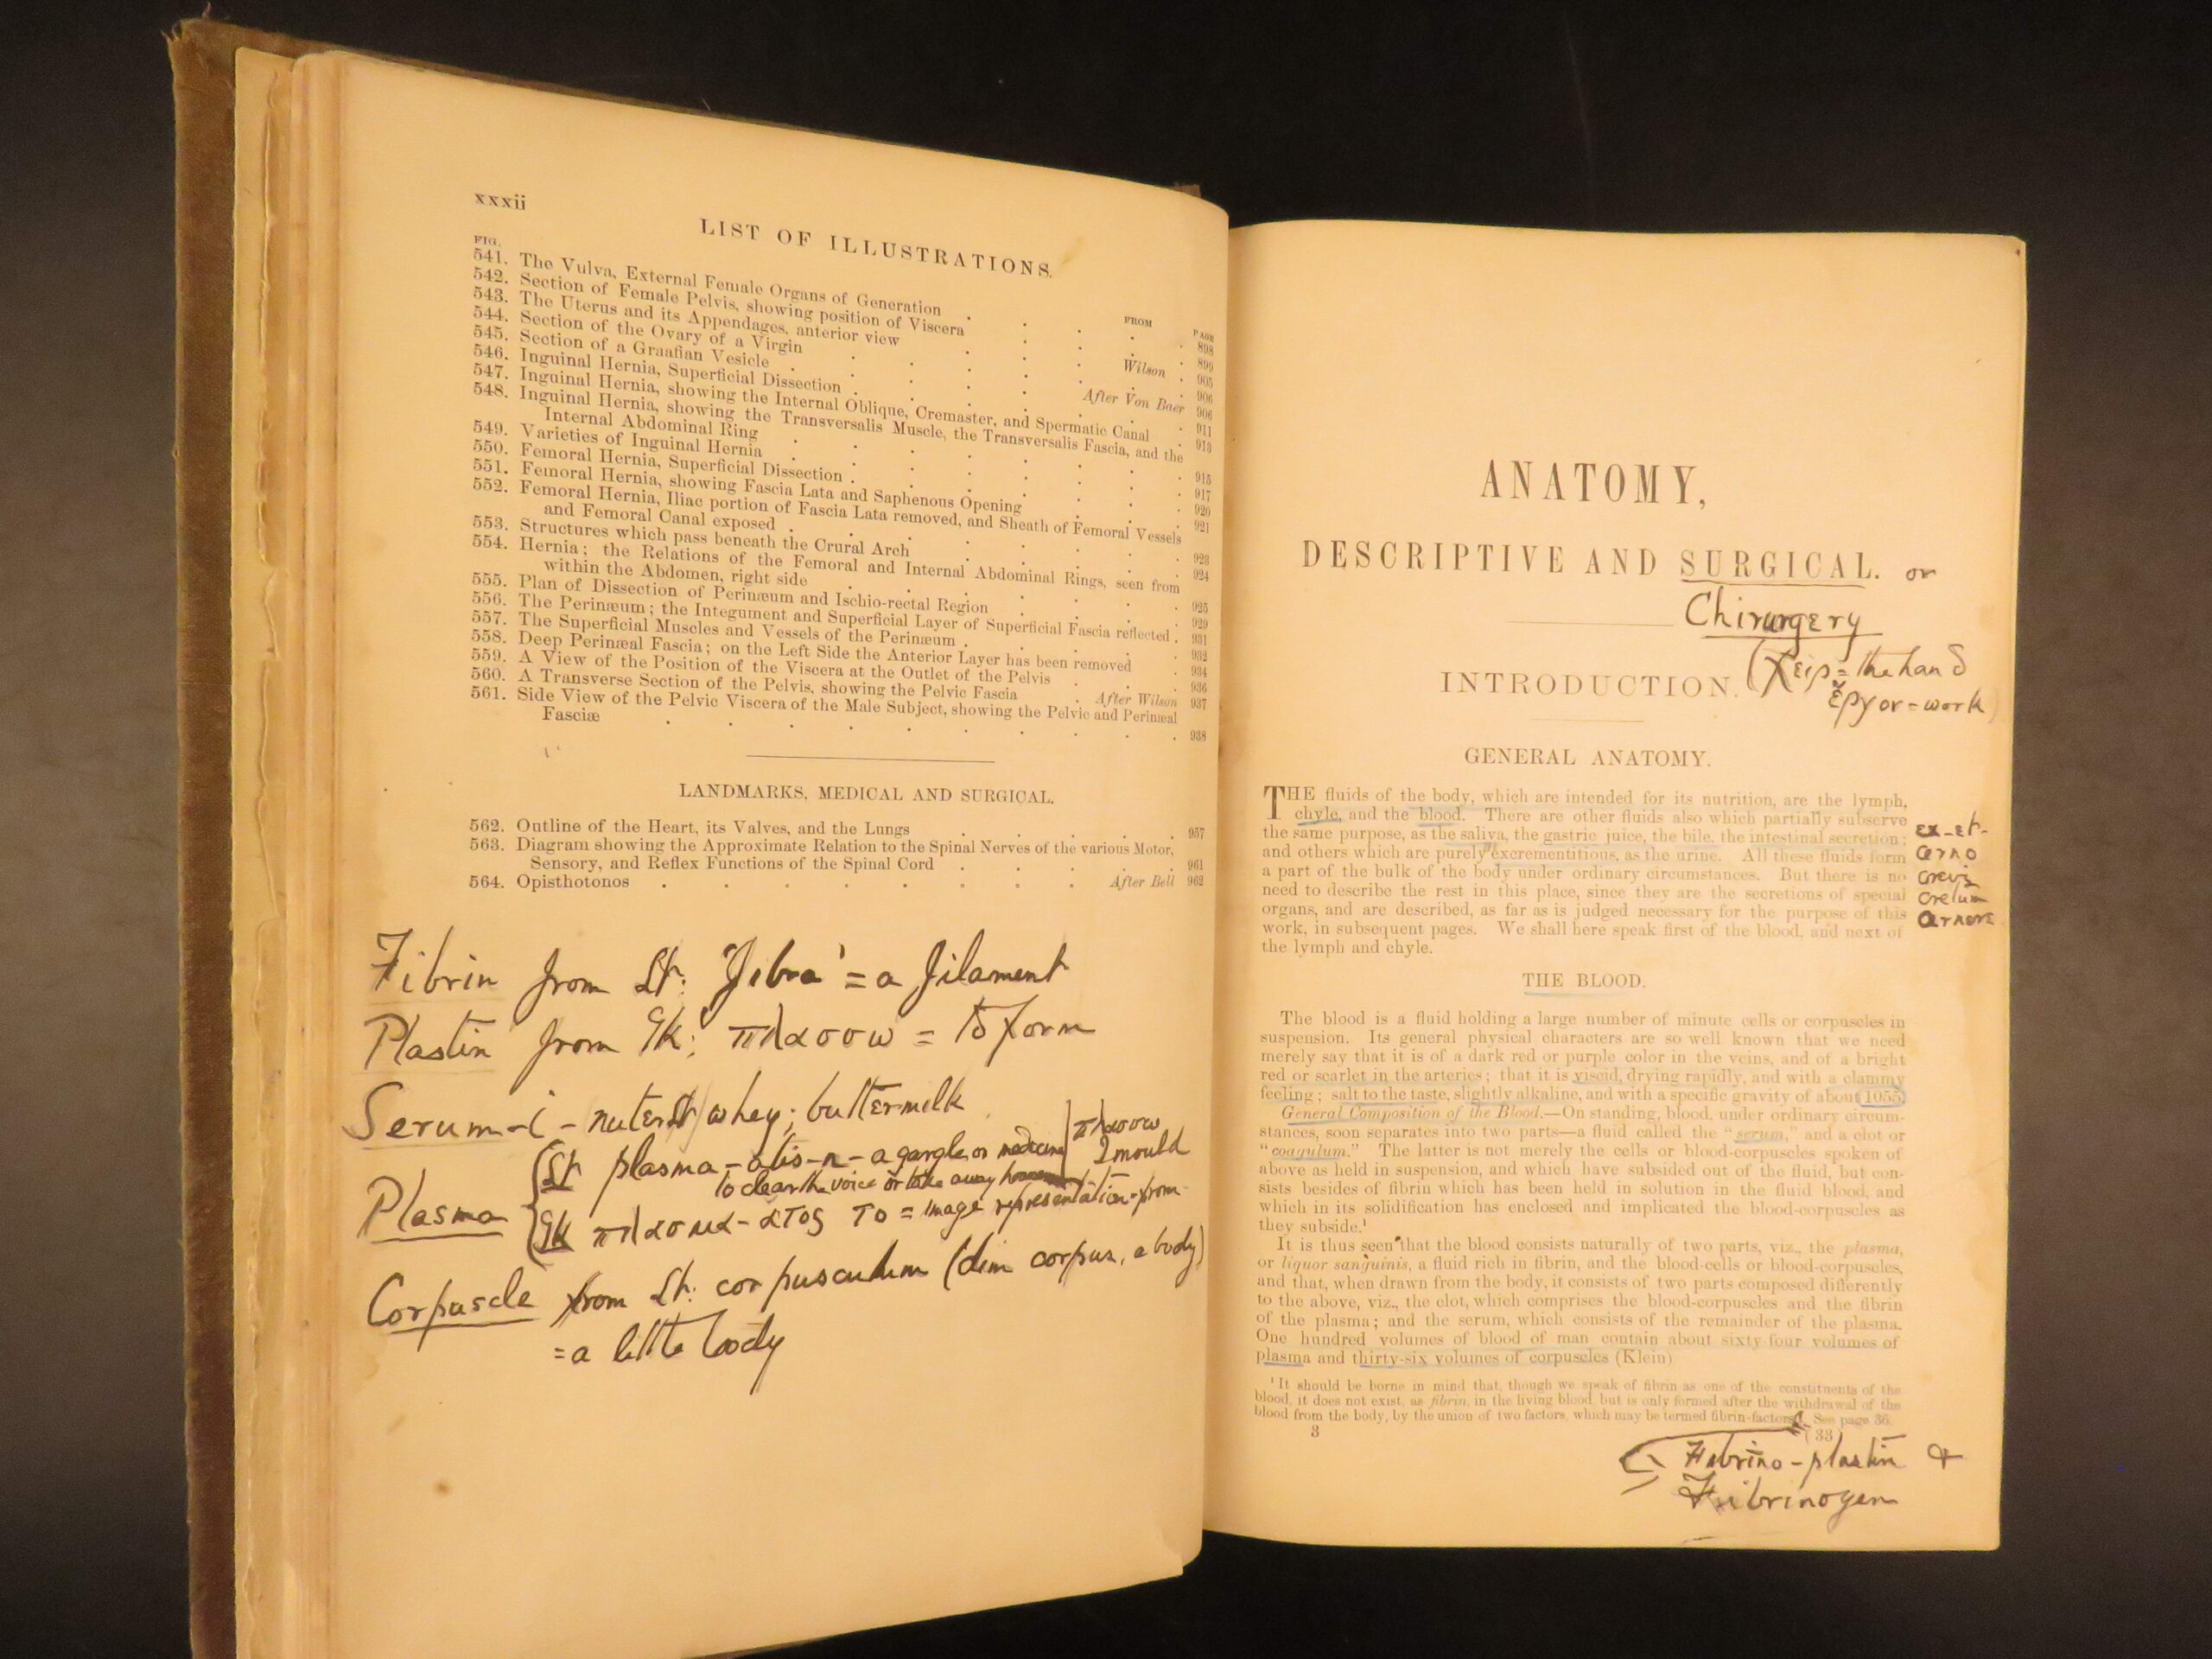 xxxii
LIST OF ILLUSTRATIONS.
FIG. FROM PAGE
541. The Vulva, External Female Organs of Generation . . . 898
542. Section of Female Pelvis, showing position of Viscera . . . 899
543. The Uterus and its Appendages, anterior view . . . Wilson . 905
544. Section of the Ovary of a Virgin . . . 906
545. Section of a Graafian Vesicle . . . After Von Baer 906
546. Inguinal Hernia, Superficial Dissection . . . 911
547. Inguinal Hernia, showing the Internal Oblique, Cremaster, and Spermatic Canal . 913
548. Inguinal Hernia, showing the Transversalis Muscle, the Transversalis Fascia, and the
Internal Abdominal Ring . . . 915
549. Varieties of Inguinal Hernia . . . 917
550. Femoral Hernia, Superficial Dissection . . . 920
551. Femoral Hernia, showing Fascia Lata and Saphenous Opening . . . 921
552. Femoral Hernia, Iliac portion of Fascia Lata removed, and Sheath of Femoral Vessels
and Femoral Canal exposed . . . 923
553. Structures which pass beneath the Crural Arch . . . 924
554. Hernia; the Relations of the Femoral and Internal Abdominal Rings, seen from
within the Abdomen, right side . . . 925
555. Plan of Dissection of Perinæum and Ischio-rectal Region . . . 929
556. The Perinæum; the Integument and Superficial Layer of Superficial Fascia reflected . 931
557. The Superficial Muscles and Vessels of the Perinæum . . . 932
558. Deep Perinæal Fascia; on the Left Side the Anterior Layer has been removed . 934
559. A View of the Position of the Viscera at the Outlet of the Pelvis . . 936
560. A Transverse Section of the Pelvis, showing the Pelvic Fascia . After Wilson 937
561. Side View of the Pelvic Viscera of the Male Subject, showing the Pelvic and Perinæal
Fasciæ . . . 938
LANDMARKS, MEDICAL AND SURGICAL.
562. Outline of the Heart, its Valves, and the Lungs . . . 957
563. Diagram showing the Approximate Relation to the Spinal Nerves of the various Motor,
Sensory, and Reflex Functions of the Spinal Cord . . . 961
564. Opisthotonos . . . After Bell 962
Fibrin from Lt: 'fibra' = a filament
Plastin from Gk: πλασσω = to form
Serum-i - neuter Lt whey; buttermilk
Plasma { Lt plasma-atis-n- a gargle or medicine
to clear the voice or take away
πλασσω
I mould
Gk πλασμα-ατος το = image representation-from
Corpuscle from Lt: corpusculum (dim corpus, a body)
= a little body
ANATOMY,
DESCRIPTIVE AND SURGICAL. or
Chirurgery
(χειρ = the hand
εργον = work)
INTRODUCTION.
GENERAL ANATOMY.
THE fluids of the body, which are intended for its nutrition, are the lymph,
chyle, and the blood. There are other fluids also which partially subserve
the same purpose, as the saliva, the gastric juice, the bile, the intestinal secretion;
and others which are purely excrementitious, as the urine. All these fluids form
a part of the bulk of the body under ordinary circumstances. But there is no
need to describe the rest in this place, since they are the secretions of special
organs, and are described, as far as is judged necessary for the purpose of this
work, in subsequent pages. We shall here speak first of the blood, and next of
the lymph and chyle.
ex-et-
cerno
crevi
cretum
cernere
THE BLOOD.
The blood is a fluid holding a large number of minute cells or corpuscles in
suspension. Its general physical characters are so well known that we need
merely say that it is of a dark red or purple color in the veins, and of a bright
red or scarlet in the arteries; that it is viscid, drying rapidly, and with a clammy
feeling; salt to the taste, slightly alkaline, and with a specific gravity of about 1055.
General Composition of the Blood.—On standing, blood, under ordinary circum-
stances, soon separates into two parts—a fluid called the "serum," and a clot or
"coagulum." The latter is not merely the cells or blood-corpuscles spoken of
above as held in suspension, and which have subsided out of the fluid, but con-
sists besides of fibrin which has been held in solution in the fluid blood, and
which in its solidification has enclosed and implicated the blood-corpuscles as
they subside.¹
It is thus seen that the blood consists naturally of two parts, viz., the plasma,
or liquor sanguinis, a fluid rich in fibrin, and the blood-cells or blood-corpuscles,
and that, when drawn from the body, it consists of two parts composed differently
to the above, viz., the clot, which comprises the blood-corpuscles and the fibrin
of the plasma; and the serum, which consists of the remainder of the plasma.
One hundred volumes of blood of man contain about sixty-four volumes of
plasma and thirty-six volumes of corpuscles (Klein)
¹ It should be borne in mind that, though we speak of fibrin as one of the constituents of the
blood, it does not exist, as fibrin, in the living blood, but is only formed after the withdrawal of the
blood from the body, by the union of two factors, which may be termed fibrin-factors. See page 36.
3 (33)
Fibrino-plastin &
Fibrinogen